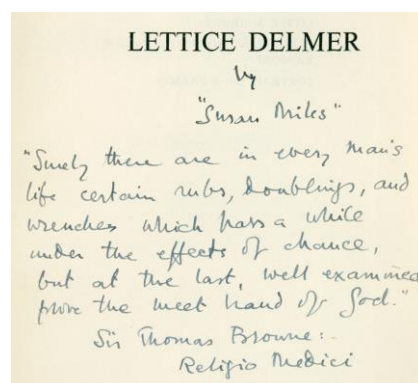 LETTICE DELMER
by
"Susan Miles"
"Surely there are in every man's
life certain rubs, doublings, and
wrenches which pass a while
under the effects of chance,
but at the last, well examined
prove the meet hand of God."
Sir Thomas Browne:-
Religio Medici